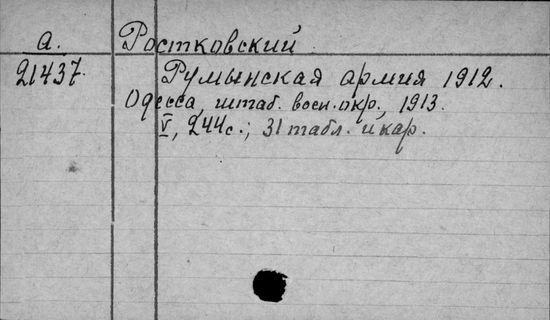 а. Ростковский
21437. Румынская армия 1912.
Одесса, штаб. воен. окр., 1913.
V, 244с.; 31 табл. и кар.